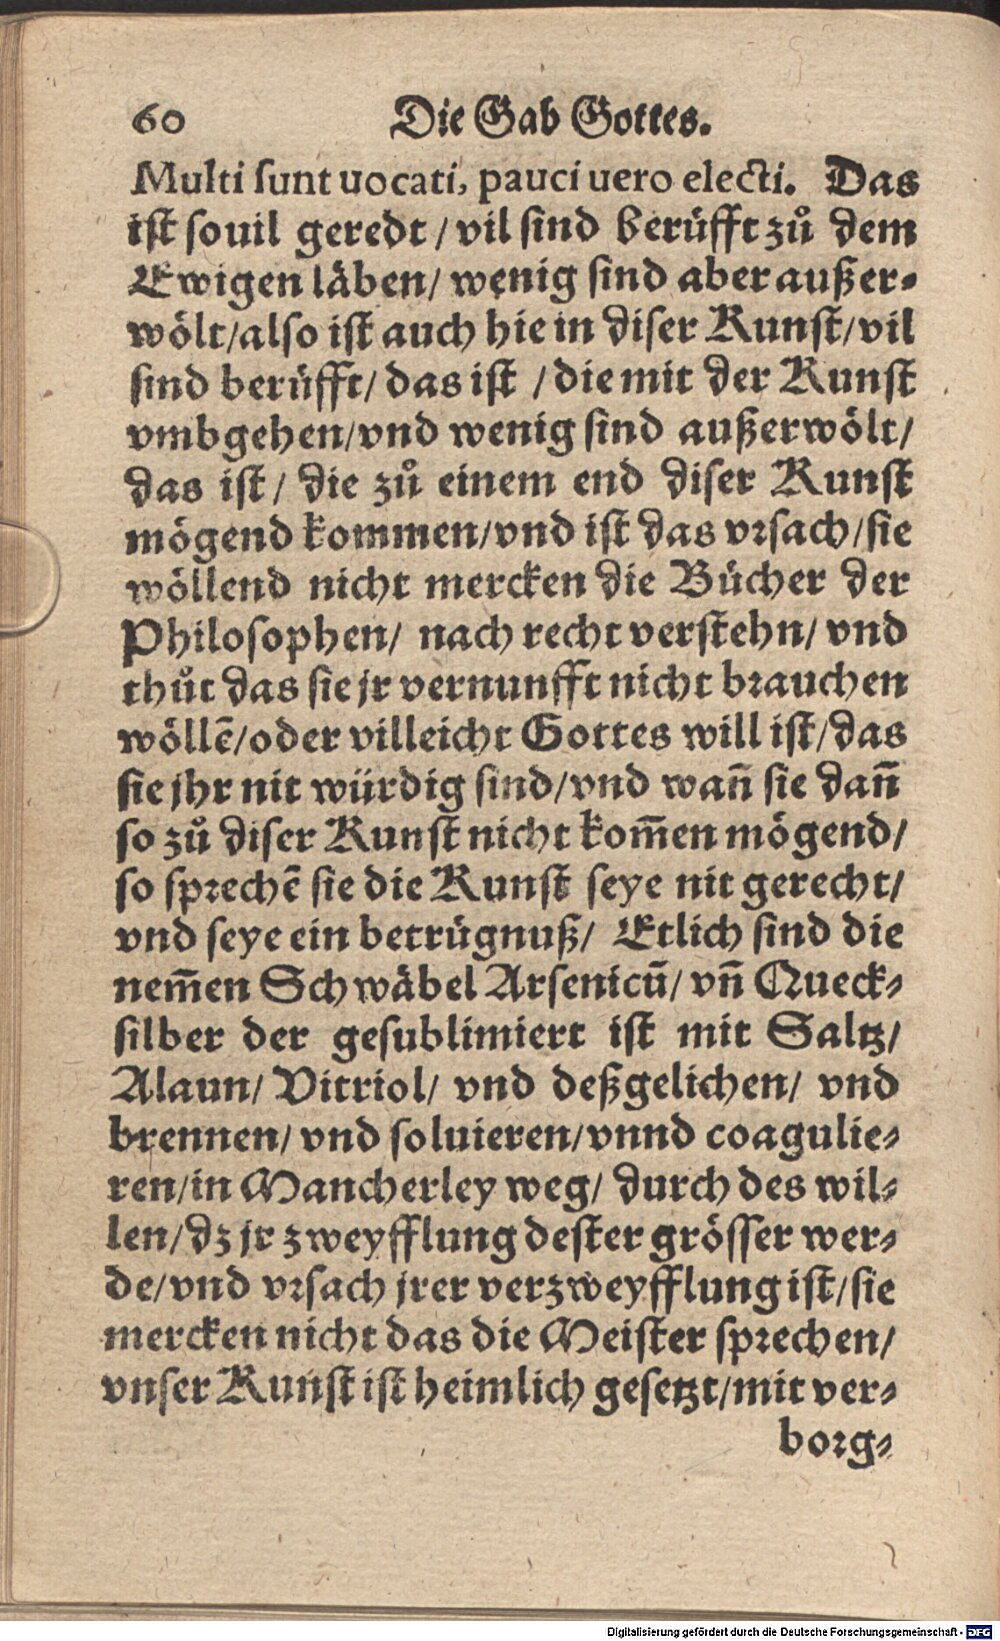 60 Die Gab Gottes.
Multi sunt uocati, pauci uero electi. Das
ist souil geredt / vil sind berüfft zů dem
Ewigen läben / wenig sind aber außer-
wölt / also ist auch hie in diser Kunst / vil
sind berüfft / das ist / die mit der Kunst
vmbgehen / vnd wenig sind außerwölt /
das ist / die zů einem end diser Kunst
mögend kommen / vnd ist das vrsach / sie
wöllend nicht mercken die Bücher der
Philosophen / nach recht verstehn / vnd
thůt das sie jr vernunfft nicht brauchen
wöllē / oder villeicht Gottes will ist / das
sie jhr nit würdig sind / vnd wañ sie dañ
so zů diser Kunst nicht kom̄en mögend /
so sprechē sie die Kunst seye nit gerecht /
vnd seye ein betrügnuß / Etlich sind die
nem̄en Schwäbel Arsenicū / vñ Queck-
silber der gesublimiert ist mit Saltz /
Alaun / Vitriol / vnd deßgelichen / vnd
brennen / vnd soluieren / vnnd coagulie-
ren / in Mancherley weg / durch des wil-
len / dz jr zweyfflung dester grösser wer-
de / vnd vrsach jrer verzweyfflung ist / sie
mercken nicht das die Meister sprechen /
vnser Kunst ist heimlich gesetzt / mit ver-
borg-
Digitalisierung gefördert durch die Deutsche Forschungsgemeinschaft - DFG